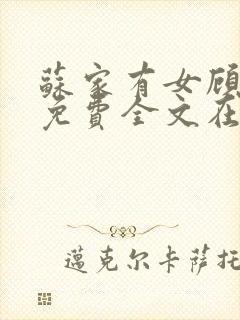 蘇家有女顾
免費全文在
邁克尔卡萨托